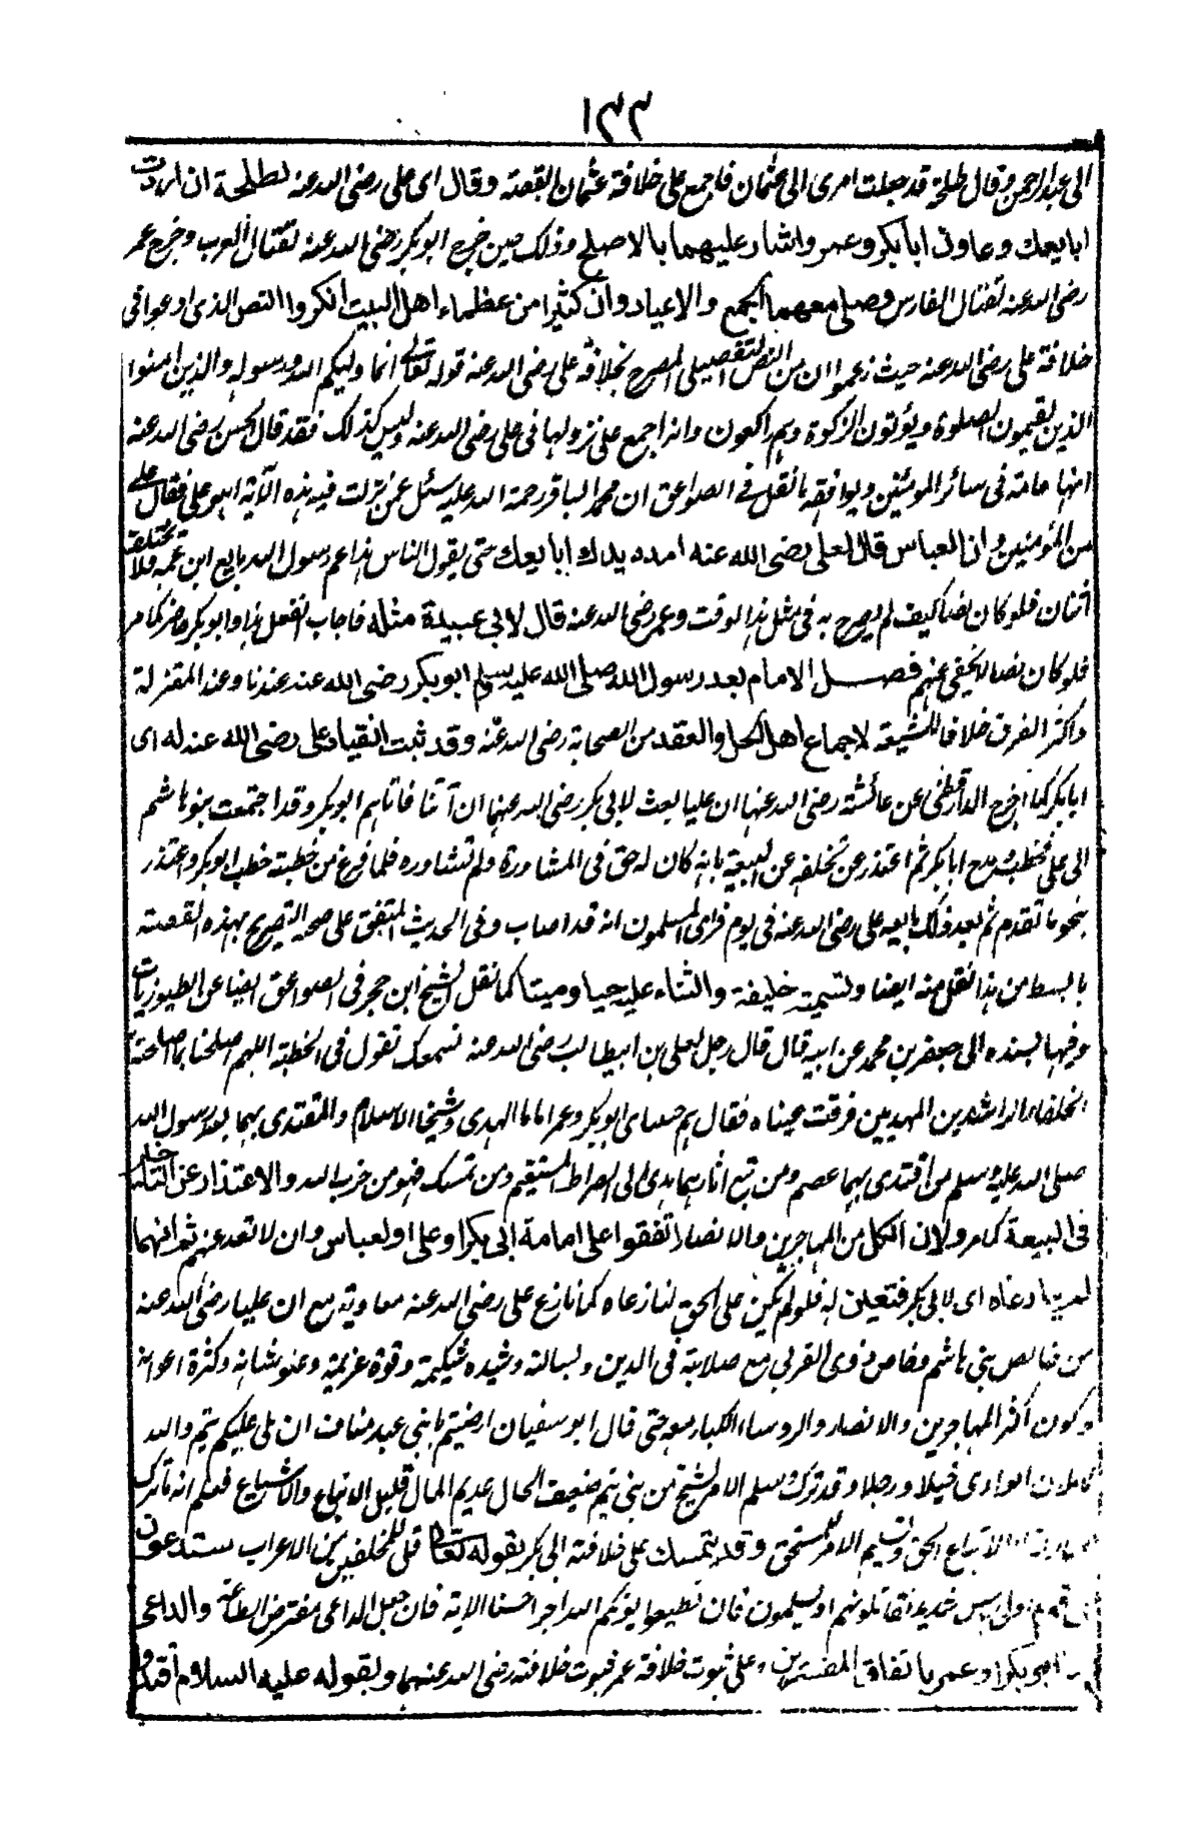 ١٣٣
الى عبد الرحمن وقال طلحة قد جعلت امرى الى عثمان فاجمع على خلافة عثمان القصة وقال اى على رضى الله عنه لطلحة ان اردت
ابايعك وعاون ابابكر وعمر واشار عليهما بالاصلح وذلك حين خرج ابو بكر رضى الله عنه لقتال العرب وخرج عمر
رضى الله عنه لقتال الفارس وصلى معهما الجمع والاعياد وان كثيرا من عظماء اهل البيت انكروا النص الذى ادعوا فى
خلافة على رضى الله عنه حيث زعموا ان من النص التفصيلى المصرح بخلافة على رضى الله عنه قوله تعالى انما وليكم الله ورسوله والذين امنوا
الذين يقيمون الصلوة ويؤتون الزكوة وهم راكعون وانه اجمع على نزولها فى على رضى الله عنه وليس كذلك فقد قال الحسن رضى الله عنه
انها عامة فى سائر المومنين ويوافقه ما نقل فى الصواعق ان محمد الباقر رحمة الله عليه سئل عمن نزلت فيه هذه الآية اهو على فقال على
من المؤمنين وان العباس قال لعلى رضى الله عنه امدد يدك ابايعك حتى يقول الناس هذا عم رسول الله بايع ابن عمه فلا يختلف
اثنان فلو كان نصا كيف لم يصرح به فى مثل هذا الوقت وعمر رضى الله عنه قال لابى عبيدة مثله فاجاب اتفعل هذا وابوبكر حاضر كما مر
فلو كان نصا لا يخفى عنهم فصل الامام بعد رسول الله صلى الله عليه وسلم ابوبكر رضى الله عنه عندنا وعند المعتزلة
واكثر الفرق خلافا للشيعة لاجماع اهل الحل والعقد من الصحابة رضى الله عنه وقد ثبت انقياد على رضى الله عنه له اى
ابابكر كما اخرج الدارقطنى عن عائشة رضى الله عنها ان عليا بعث لابى بكر رضى الله عنهما ان آتنا فاتاهم ابوبكر وقد اجتمعت بنو هاشم
الى على فخطب ومدح ابابكر ثم اعتذر عن تخلفه عن البيعة بانه كان له حق فى المشاورة ولم تشاوره فلما فرغ من خطبته خطب ابوبكر واعتذر
بنحو ما تقدم ثم بعد ذلك بايعه على رضى الله عنه فى يوم فراى المسلمون انه قد اصاب وفى الحديث المتفق على صحته التصريح بهذه القصة
بابسط من هذا نقل منه ايضا وتسميته خليفة والثناء عليه حيا وميتا كما نقل الشيخ ابن حجر فى الصواعق ايضا عن الطيوريات
وفيها بسنده الى جعفر بن محمد عن ابيه قال قال رجل لعلى بن ابيطالب رضى الله عنه نسمعك تقول فى الخطبة اللهم اصلحنا بما اصلحت به
الخلفاء الراشدين المهديين فرقت عيناه فقال هم حبيباى ابوبكر وعمر اماما الهدى وشيخا الاسلام والمقتدى بهما بعد رسول الله
صلى الله عليه وسلم من اقتدى بهما عصم ومن تبع اثارهما هدى الى الصراط المستقيم ومن تمسك فهو من حزب الله والاعتذار عن التاخير
فى البيعة كما مر ولان الكل من المهاجرين والانصار اتفقوا على امامة ابى بكر او على او لعباس وان لا تعد عنهم ثم انهما
لم ينازعاه اى لابى بكر فتعين له فلو لم يكن على الحق لنازعاه كما نازع على رضى الله عنه معاوية مع ان عليا رضى الله عنه
من خالص بنى هاشم وخاص ذوى القربى مع صلابة فى الدين وبسالة وشدة شكيمة وقوة عزيمة وعلو شانه وكثرة اعوانه
وكون اكثر المهاجرين والانصار والروساء الكبار معه حتى قال ابو سفيان ارضيتم يابنى عبد مناف ان يلى عليكم تيم والله
لاملان الوادى خيلا ورجلا وقد ترك وسلم الامر لشيخ من بنى تيم ضعيف الحال عديم المال قليل الاتباع والاشياع فعلم انه ما ترك
الا لاتباع الحق وتسليم الامر للمستحق وقد يتمسك على خلافته ابى بكر بقوله تعالى قل للمخلفين من الاعراب ستدعون
الى قوم اولى باس شديد تقاتلونهم او يسلمون فان تطيعوا يؤتكم الله اجرا حسنا الاية فان جعل الداعى مفترض الطاعة والداعى
ابوبكر او عمر باتفاق المفسرين وعلى ثبوت خلافة عمر ثبوت خلافته رضى الله عنهما ولقوله عليه السلام اقتدوا